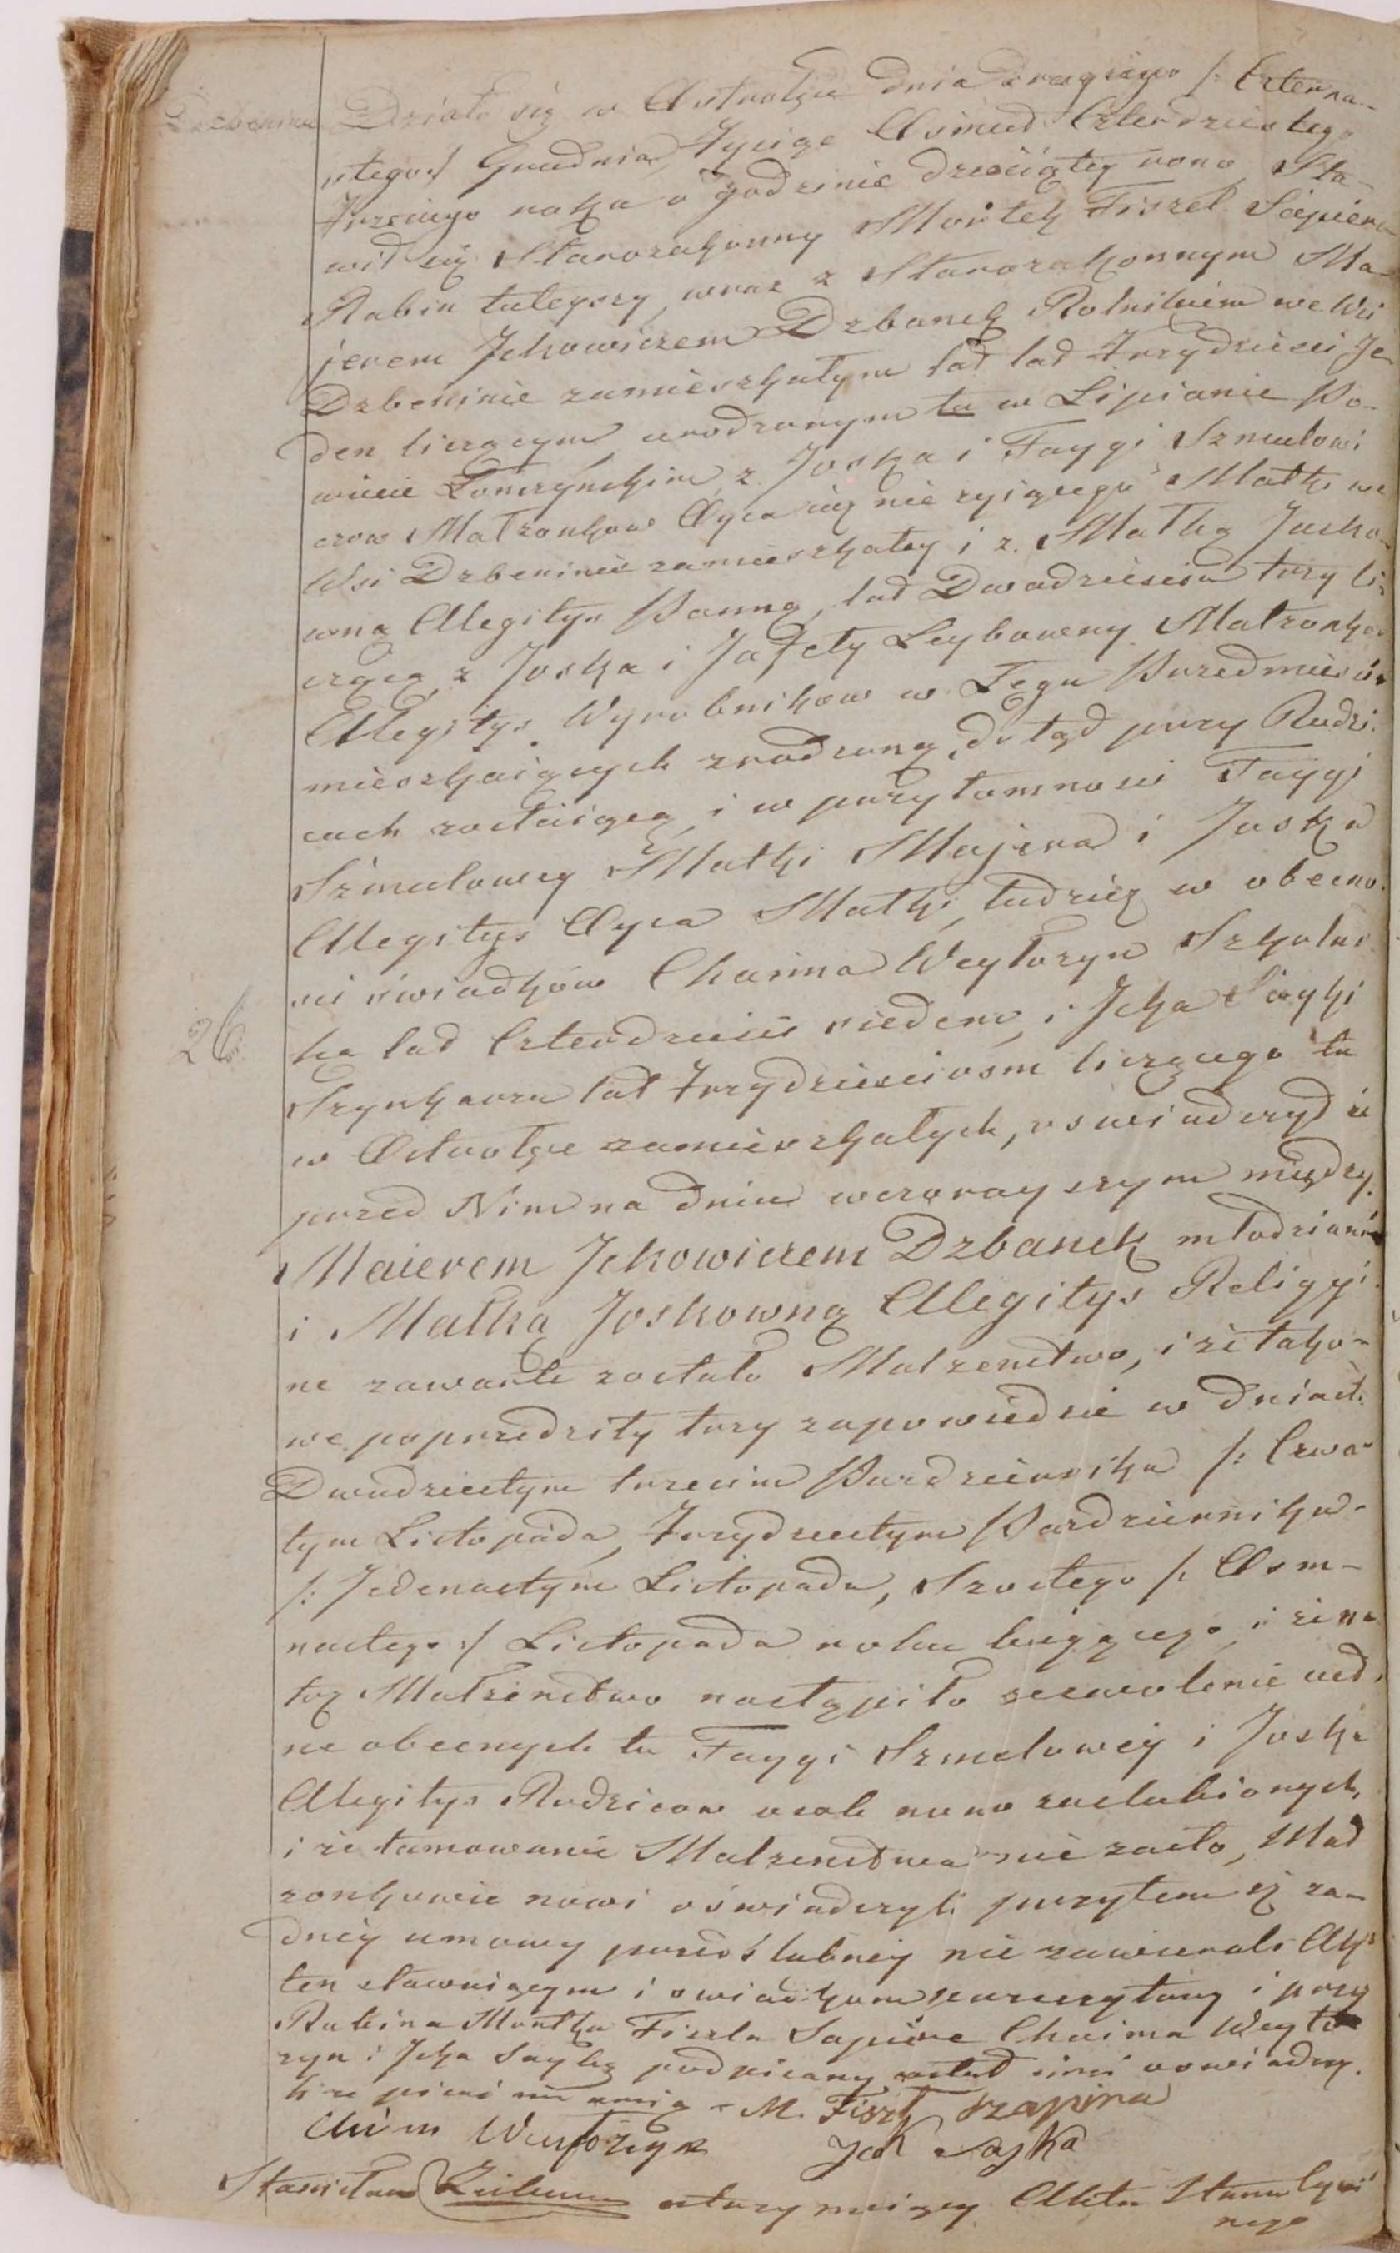 Działo się w Ostrołęce dnia drugiego /: Czterna-
stego :/ Grudnia Tysiąc Osmset Czterdziestego
Trzeciego roku o godzinie dziesiątey rano, Sta-
wił się Starozakonny Mortek Fiszel Sapiera
Rabin tuteyszy, wraz z Starozakonnym Ma-
jerem Jckowiczem Dzbanek Rolnikiem we Wsi
Dzbeninie zamieszkałym lat Trzydzieści Je
den liczącym, urodzonym tu w Lipianie Po-
wiecie Łomżyńskim, z Joska i Faygi Szmulowi
czow Małżonkow Oyca iuż nie żyiącego Matki we
Wsi Dzbeninie zamieszkałey i z Małką Josko-
wną Alegityn Panną, lat Dwadzieścia trzy li-
czącą z Joska i Jafety Leybowny Małżonkow
Alegitys Wyrobnikow w Łęgu Przedmieściu
mieszkaiących zrodzoną, dotąd przy Rodzi-
cach zostaiącą, i w przytomności Faygi
Szmulowey Matki Majera i Joska
Alegitys Oyca Małki, tudzież w obecno-
ści świadków Chaima Weytozyn Szkolni
ka lat Czterdzieści siedem, i Jcka Sayki
Szynkarza lat Trzydzieści ośm liczącego tu
w Ostrołęce zamieszkałych, oświadczył że
przed Nim na dniu wczorayszym między
Maierem Jckowiczem Dzbanek młodzianem
i Małką Joskowną Alegitys Religiy-
ne zawarte zostało Małżeństwo, i że tako-
we poprzedziły trzy zapowiedzie w dniach
Dwudziestym trzecim Października /: Czwar
tym Listopada, Trzydziestym Października
/: Jedenastym Listopada, Szostego /: Osm-
nastego :/ Listopada roku bieżącego, i że na
toż Małżeństwo nastąpiło zezwolenie ust-
ne obecnych tu Faygi Szmulowey i Joska
Alegitys Rodzicow osob nowo zaślubionych,
i że tamowanie Małżeństwa nie zaszło, Mał
żonkowie nowi oświadczyli przytem iż ża-
dney umowy przedślubney nie zawierali Akt
ten stawaiącym i świadkom przeczytany i przez
Rabina Mortka Fiszla Sapiera Chaima Weyto
zyn i Jcka Saykę podpisany został inni oświadczy-
li że pisać nie umią - M. Fiszl Szapira
Chaim Weytozyn Jcek Sayka
Stanisław utrzymuiący Akta Stanu Cywil
nego
26.
Dzbenin